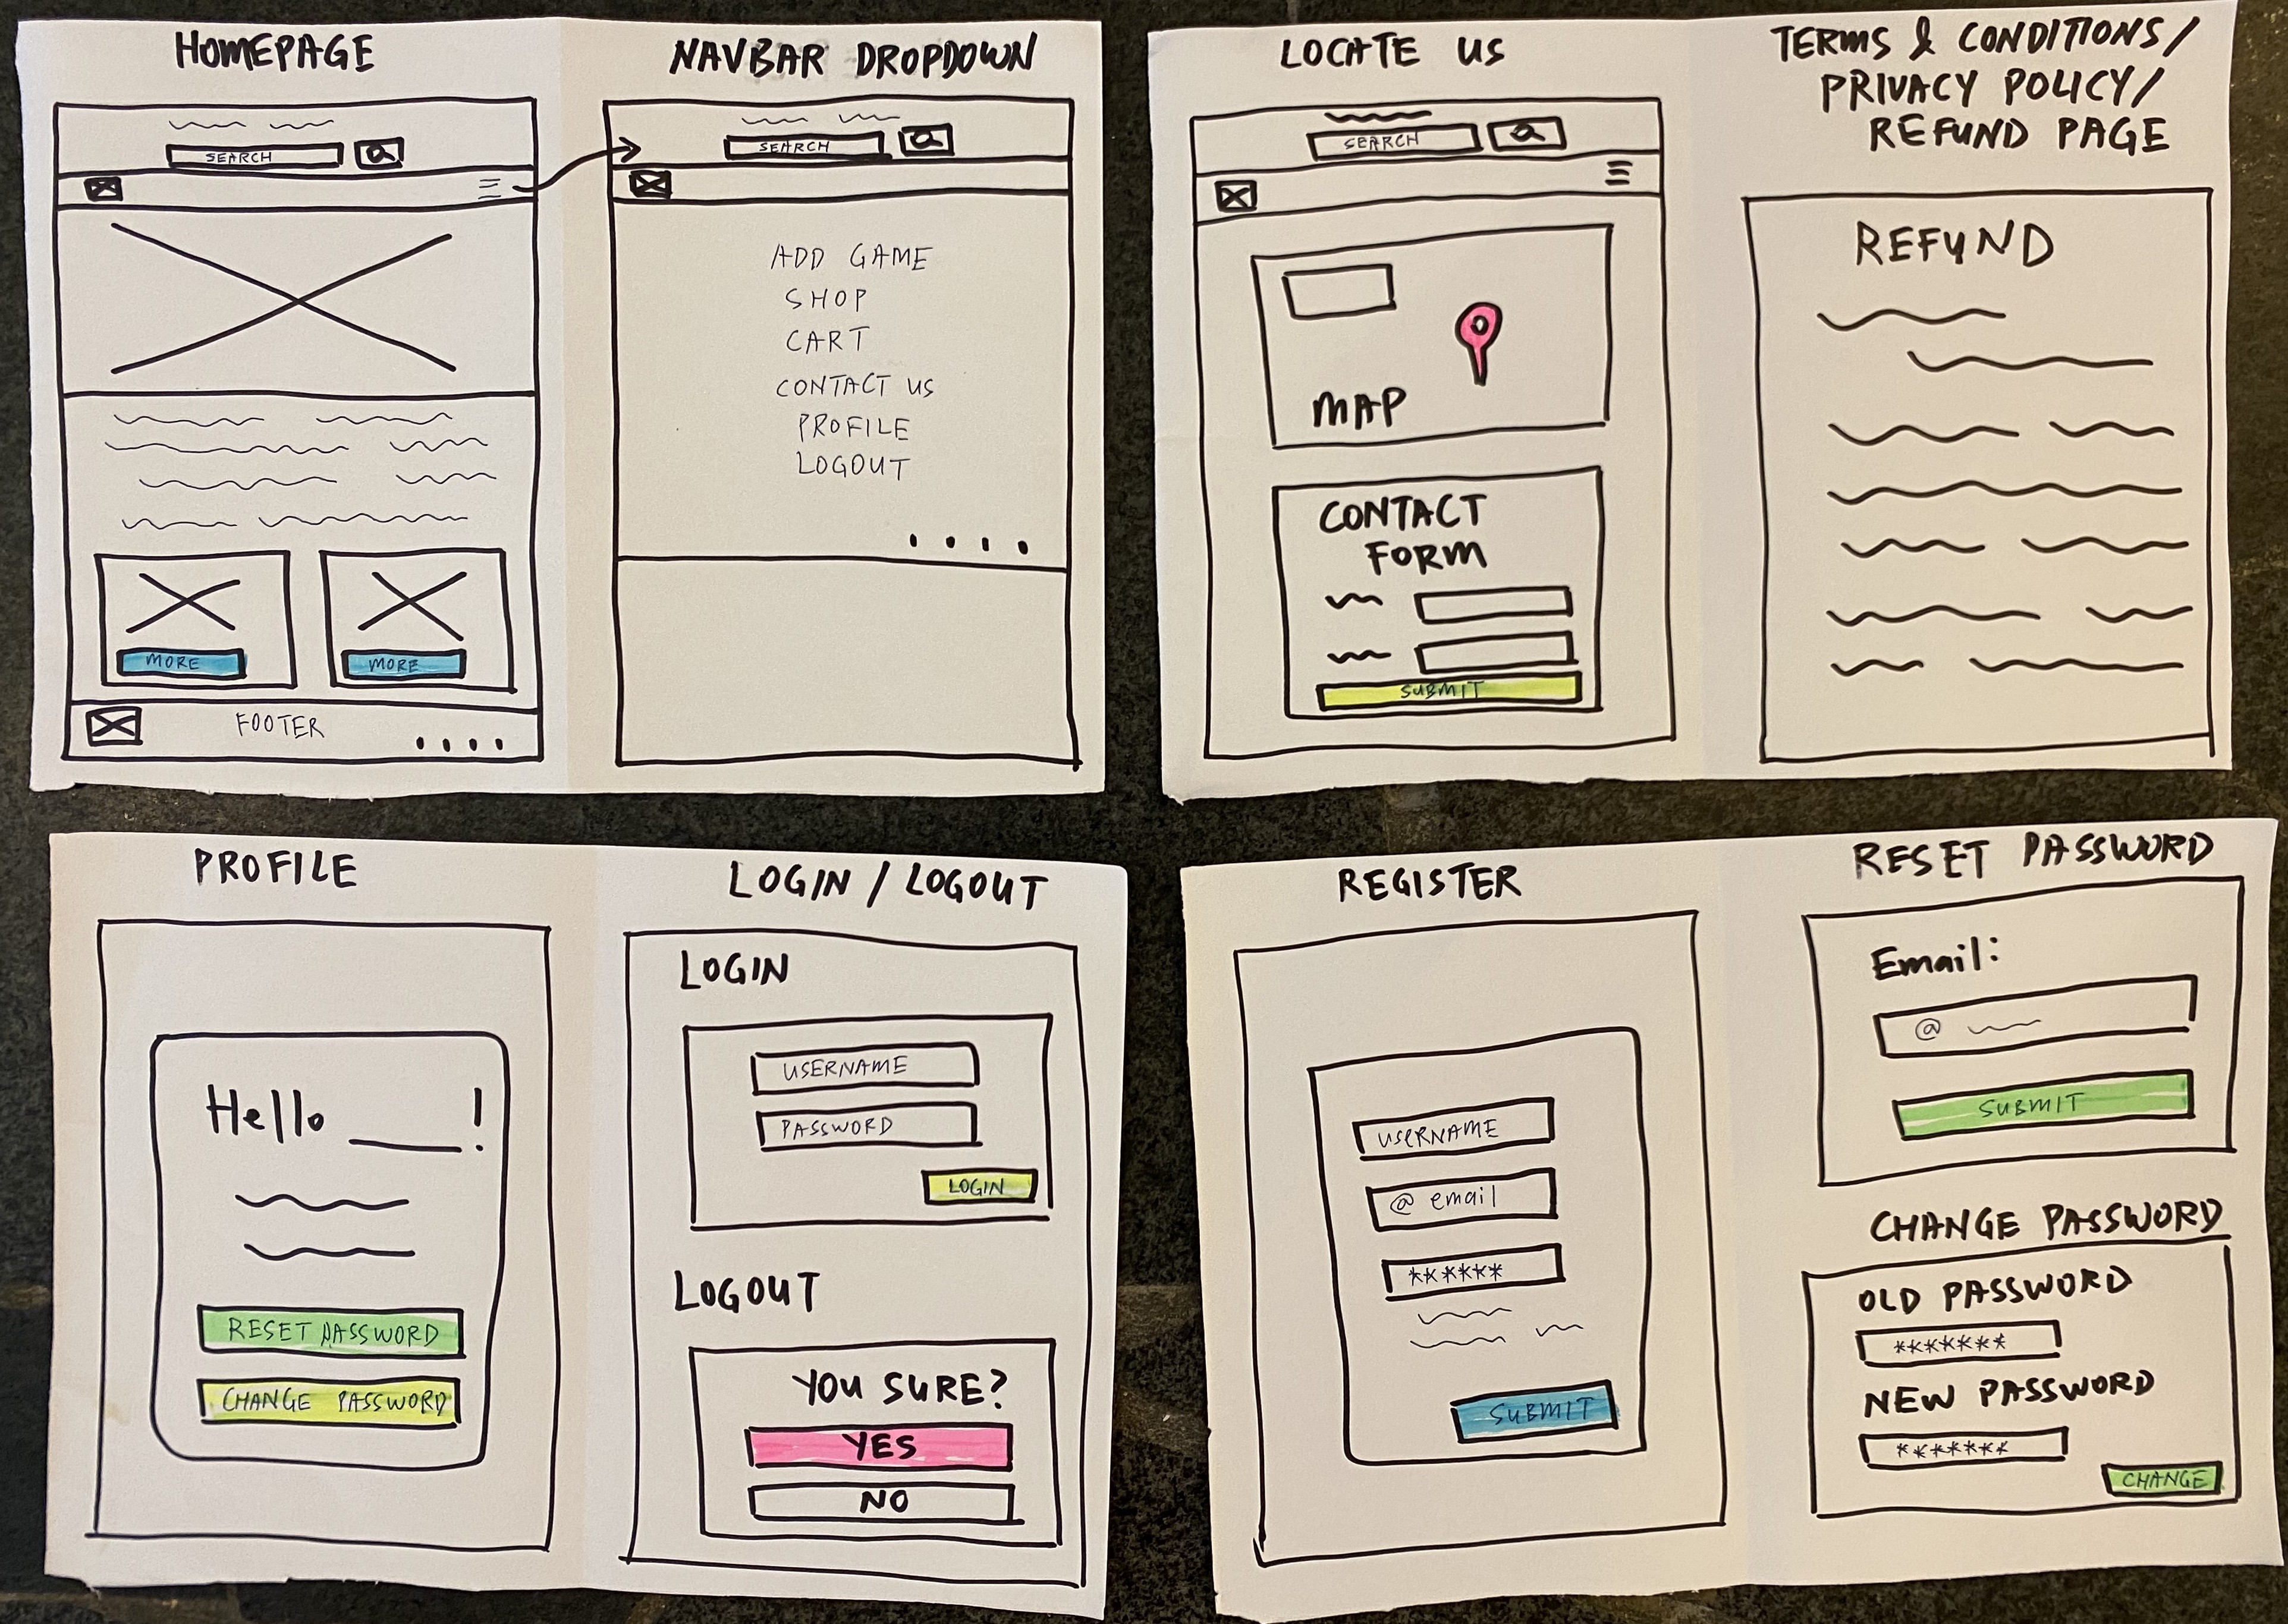 HOMEPAGE
SEARCH
MORE
MORE
FOOTER
NAVBAR DROPDOWN
SEARCH
ADD GAME
SHOP
CART
CONTACT US
PROFILE
LOGOUT
LOCATE US
SEARCH
MAP
CONTACT
FORM
SUBMIT
TERMS & CONDITIONS/
PRIVACY POLICY/
REFUND PAGE
REFUND
PROFILE
Hello ____!
RESET PASSWORD
CHANGE PASSWORD
LOGIN / LOGOUT
LOGIN
USERNAME
PASSWORD
LOGIN
LOGOUT
YOU SURE?
YES
NO
REGISTER
USERNAME
@ email
******
SUBMIT
RESET PASSWORD
Email:
@
SUBMIT
CHANGE PASSWORD
OLD PASSWORD
*******
NEW PASSWORD
*******
CHANGE